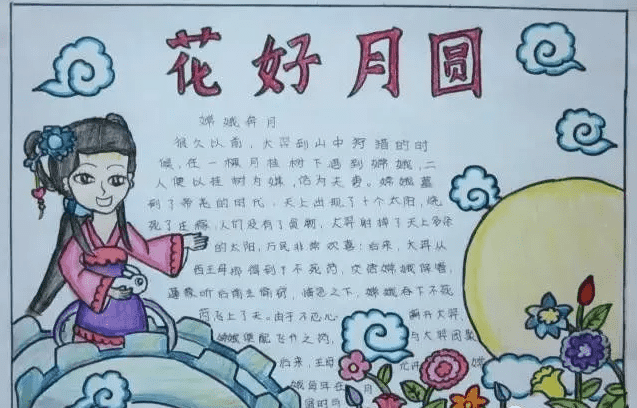 花好月圆
嫦娥奔月
很久以前，大羿到山中狩猎的时
候，在一棵月桂树下遇到嫦娥，二
人便以桂树为媒，结为夫妻。嫦娥
到了帝尧的时代，天上出现了十个太阳，烧
死了庄稼，人们没有了食粮，大羿射掉了天上多余
的太阳，万民非常欢喜；后来，大羿从
西王母那得到了不死药，交给嫦娥保管，
蓬蒙听后前去偷窃，情急之下，嫦娥吞下不死
药飞上了天。由于不忍心 离开大羿
嫦娥 飞升之药， 与大羿团聚
后来，王母 允许 嫦
娥每年在 月